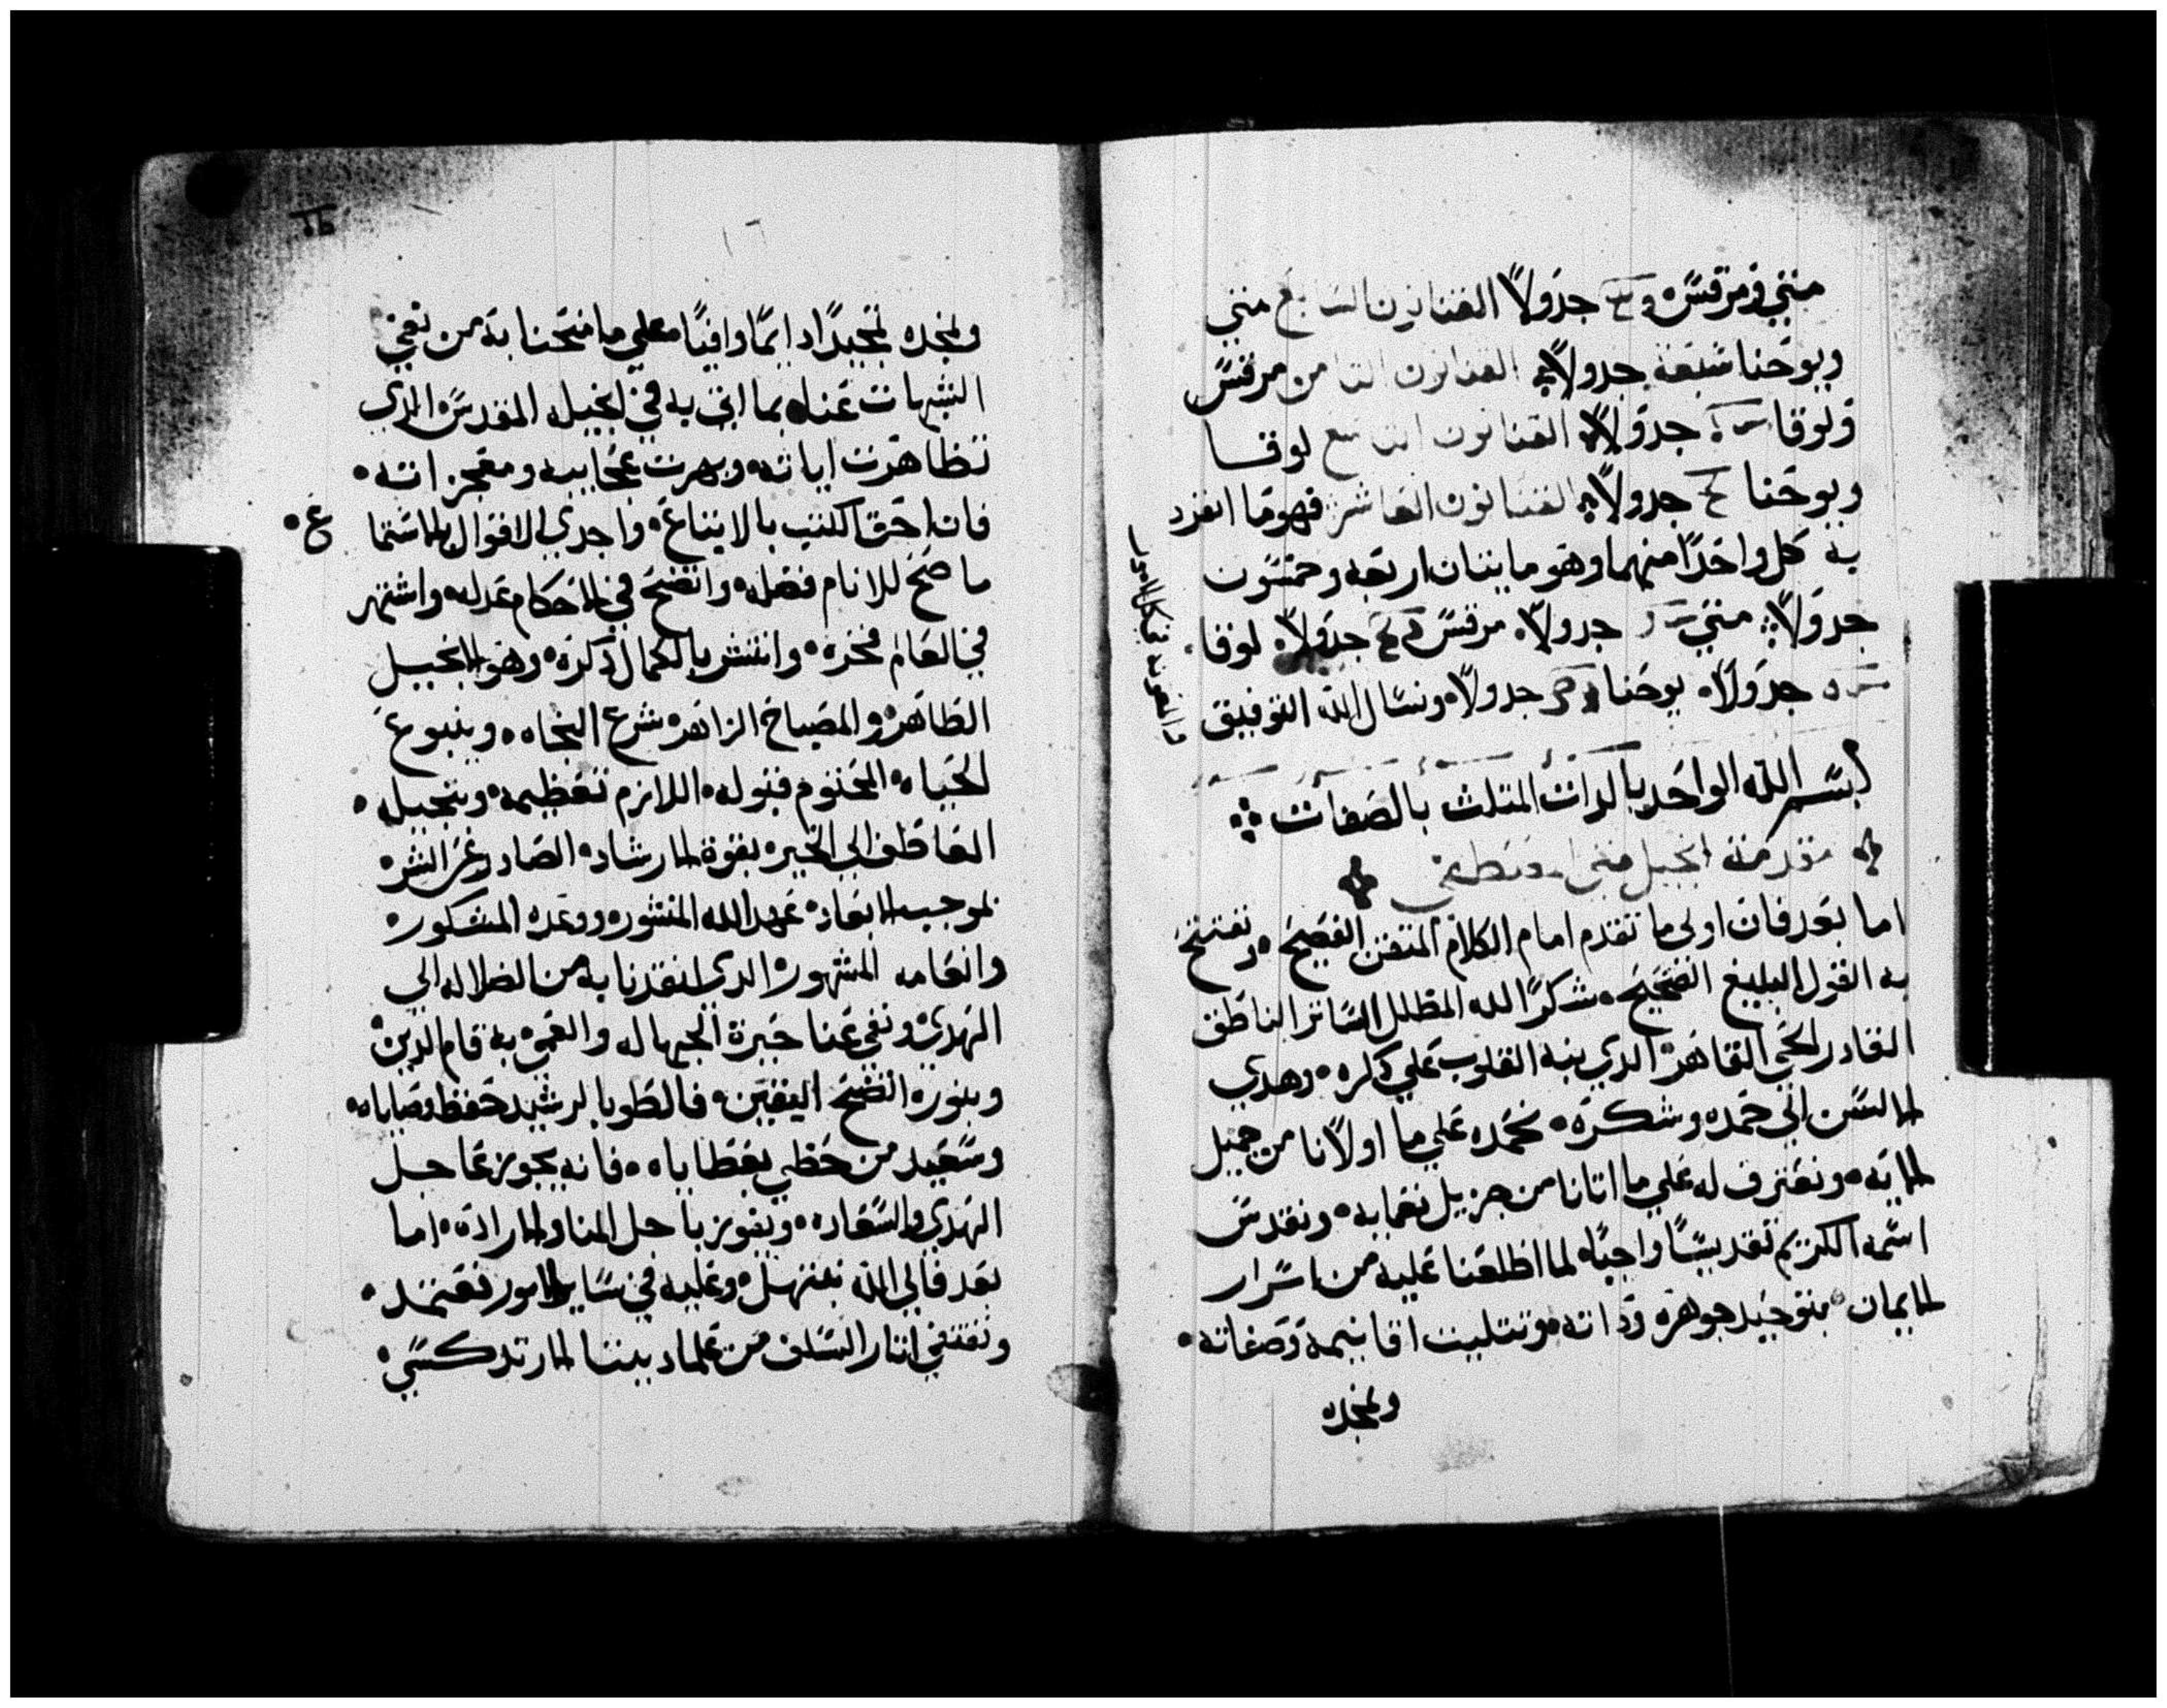 متي ومرقس و جدولاً القانون السابع متي
ويوحنا سبعة جدولاً القانون التامن مرقس
ولوقا جدولاً القانون التاسع لوقا
ويوحنا جدولاً القانون العاشر فهو ما انفرد
به كل واحدًا منهما وهو مايتان اربعه وخمسون
جدولاً متي جدولاً مرقس جدولاً لوقا
جدولاً يوحنا جدولاً ونسال الله التوفيق
والمعونه في كل الامور
بسم الله الواحد بالدات المتلت بالصفات
مقدمة انجيل متي
اما بعد فان اولى ما تقدم امام الكلام المتقن الفصيح ونفتتح
به القول البليغ الصحيح شكرًا لله المظلل الساتر الناطق
القادر الحي القاهر الدي نبه القلوب علي دكره وهدي
الالسن الى حمده وشكره نحمده علي ما اولانا من جميل
الايه ونعترف له علي ما اتانا من جزيل نعمايه ونقدس
اسمه الكريم تقديسًا واجبًا لما اطلعنا عليه من اسرار
الايمان بتوحيد جوهره وداته وتتليت اقانيمه وصفاته
ونمجده
١٦
ونمجده تمجيدًا دايمًا وافيًا علي ما منحنا به من نفي
الشبهات عنا بما اتى به في انجيله المقدس الدي
تظاهرت اياته وبهرت عجايبه ومعجزاته
فان احق الكتب بالاتباع واجدي الاقوال بالاستما
ع
ما صح للانام فضله واتضح في الاحكام عدله واشتهر
في العالم فخره وانتشر بالكمال دكره وهو الانجيل
الطاهر والمصباح الزاهر شرع النجاه وينبوع
الحياه المحتوم قبوله اللازم تعظيمه وتبجيله
العاطف الي الخير بقوة الارشاد الصادر عن الشر
بموجب الابعاد عهد الله المنشور ووعده المشكور
وانعامه المشهور الدي انقدنا به من الضلاله الي
الهدي ونفي عنا حيرة الجهاله والعمي به قام الدين
وبنوره اتضح اليقين فالطوبا لرشيد حفظ وصاياه
وسعيد من حظي بعطاياه فانه يحوز عاجل
الهدي والسعاده ويفوز باجل المنا والاراده اما
بعد فالي الله نبتهل وعليه في ساير الامور نعتمد
ونقتفي اتار السلف من علما ديننا الارتدكسي